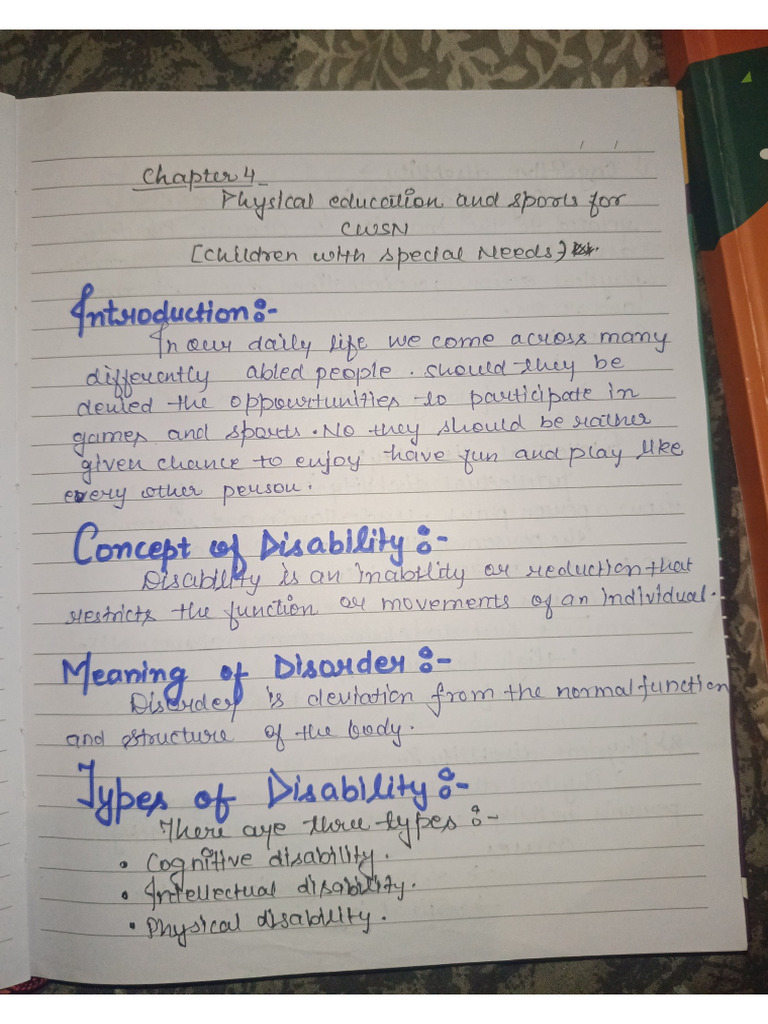 Chapter 4
Physical education and sports for
CWSN
[Children with special Needs]
Introduction:-
In our daily life we come across many
differently abled people. Should they be
denied the opportunities to participate in
games and sports. No they should be rather
given chance to enjoy have fun and play like
every other person.
Concept of Disability:-
Disability is an inability or reduction that
restricts the function or movements of an individual.
Meaning of Disorder:-
Disorder is deviation from the normal function
and structure of the body.
Types of Disability:-
There are three types:-
• Cognitive disability.
• Intellectual disability.
• Physical disability.